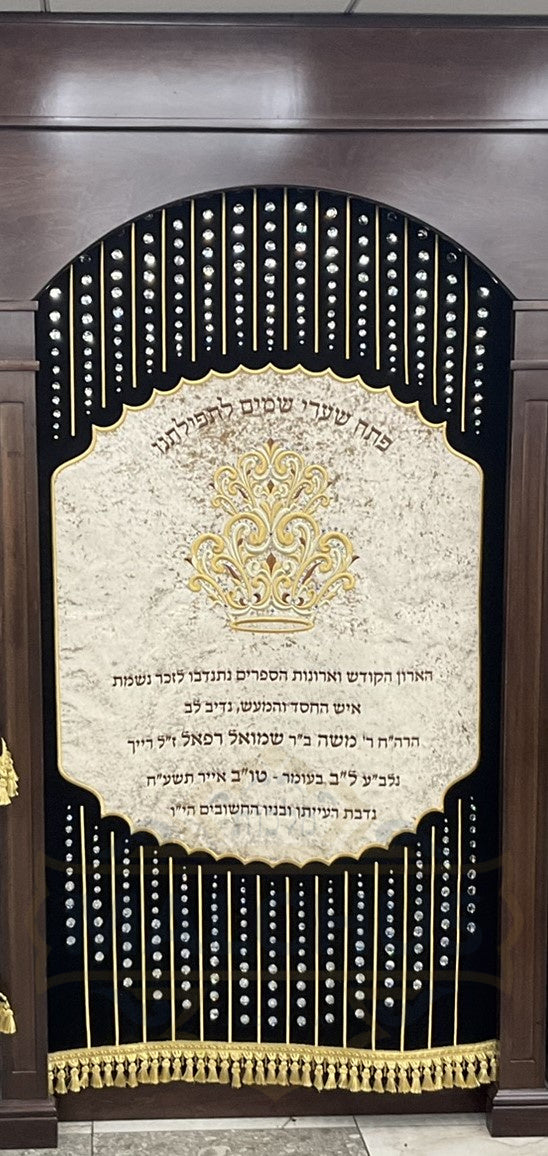 פתח שערי שמים לתפילתנו
הארון הקודש וארונות הספרים נתנדבו לזכר נשמת
איש החסד והמעש, נדיב לב
הרה"ח ר' משה ב"ר שמואל רפאל ז"ל רייך
נלב"ע ל"ב בעומר - טו"ב אייר תשע"ח
נדבת רעייתו ובניו החשובים הי"ו